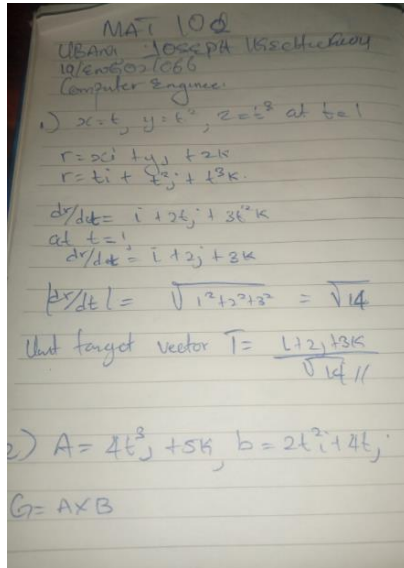 MAT 102
UBANI JOSEPH
19/ENG02/066
Computer Engine.
1) x=t, y=t², z=t³ at t=1
r=xi+yj+zk
r=ti+t²j+t³k.
dr/dt= i+2tj+3t²k
at t=1
dr/dt= i+2j+3k
|dr/dt|= √1²+2²+3² = √14
Unit tangt vector T= i+2j+3k
√14 //
2) A=4t³j+5k, b=2t²i+4tj
G=AXB